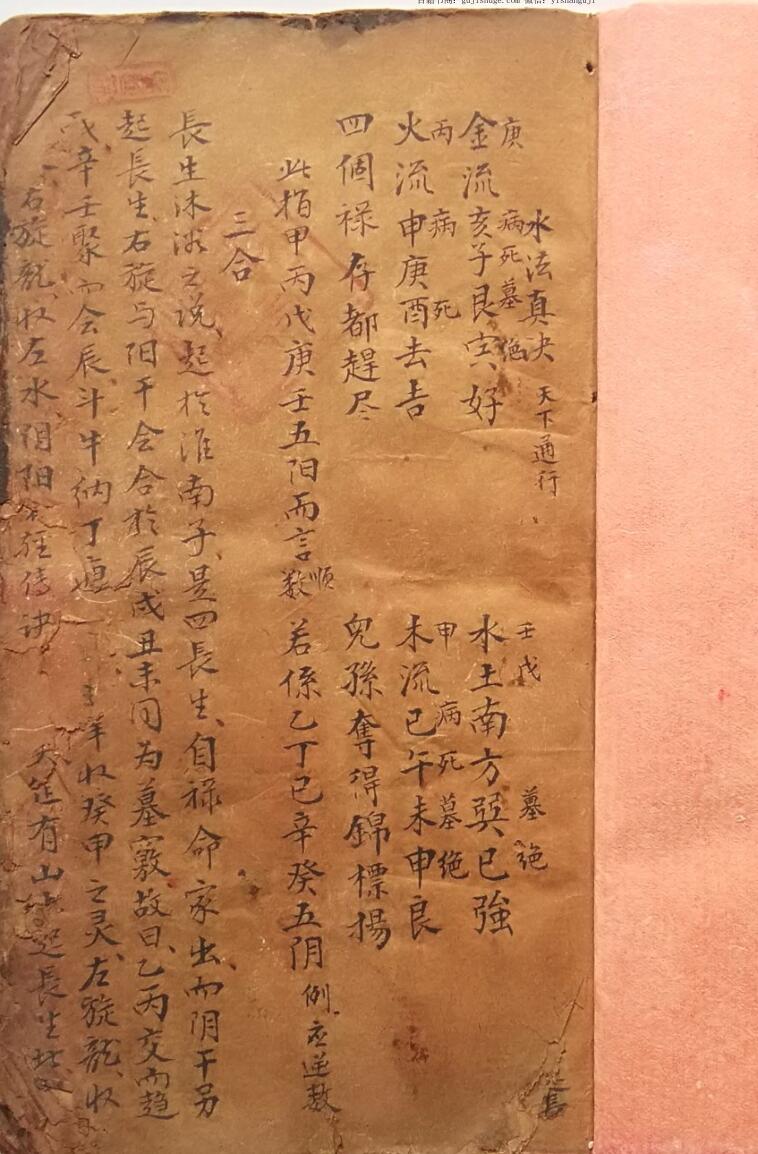 古籍书阁：gujishuge.com 微信：yishanguji
水法真决 天下通行
庚 病死墓絶 壬戊 墓絶
金流亥子艮寅好 水土南方巽巳強
丙 病 死 甲 病死墓绝
火流申庚酉去吉 木流巳午未申良
四個禄存都趕尽 兒孫奪得錦標揚
此指甲丙戊庚壬五阳而言順数 若係乙丁己辛癸五阴例应逆数
三合
長生沐浴之说、起於淮南子、是四長生、自禄命家出、而阴干另
起長生、右旋与阳干会合於辰戌丑未同为墓竅故曰、乙丙交而趋
戌辛壬聚而会辰、斗牛纳丁庚 羊收癸甲之灵、左旋龍、收
右旋龍、收左水阴阳 经传诀 有山 起長生